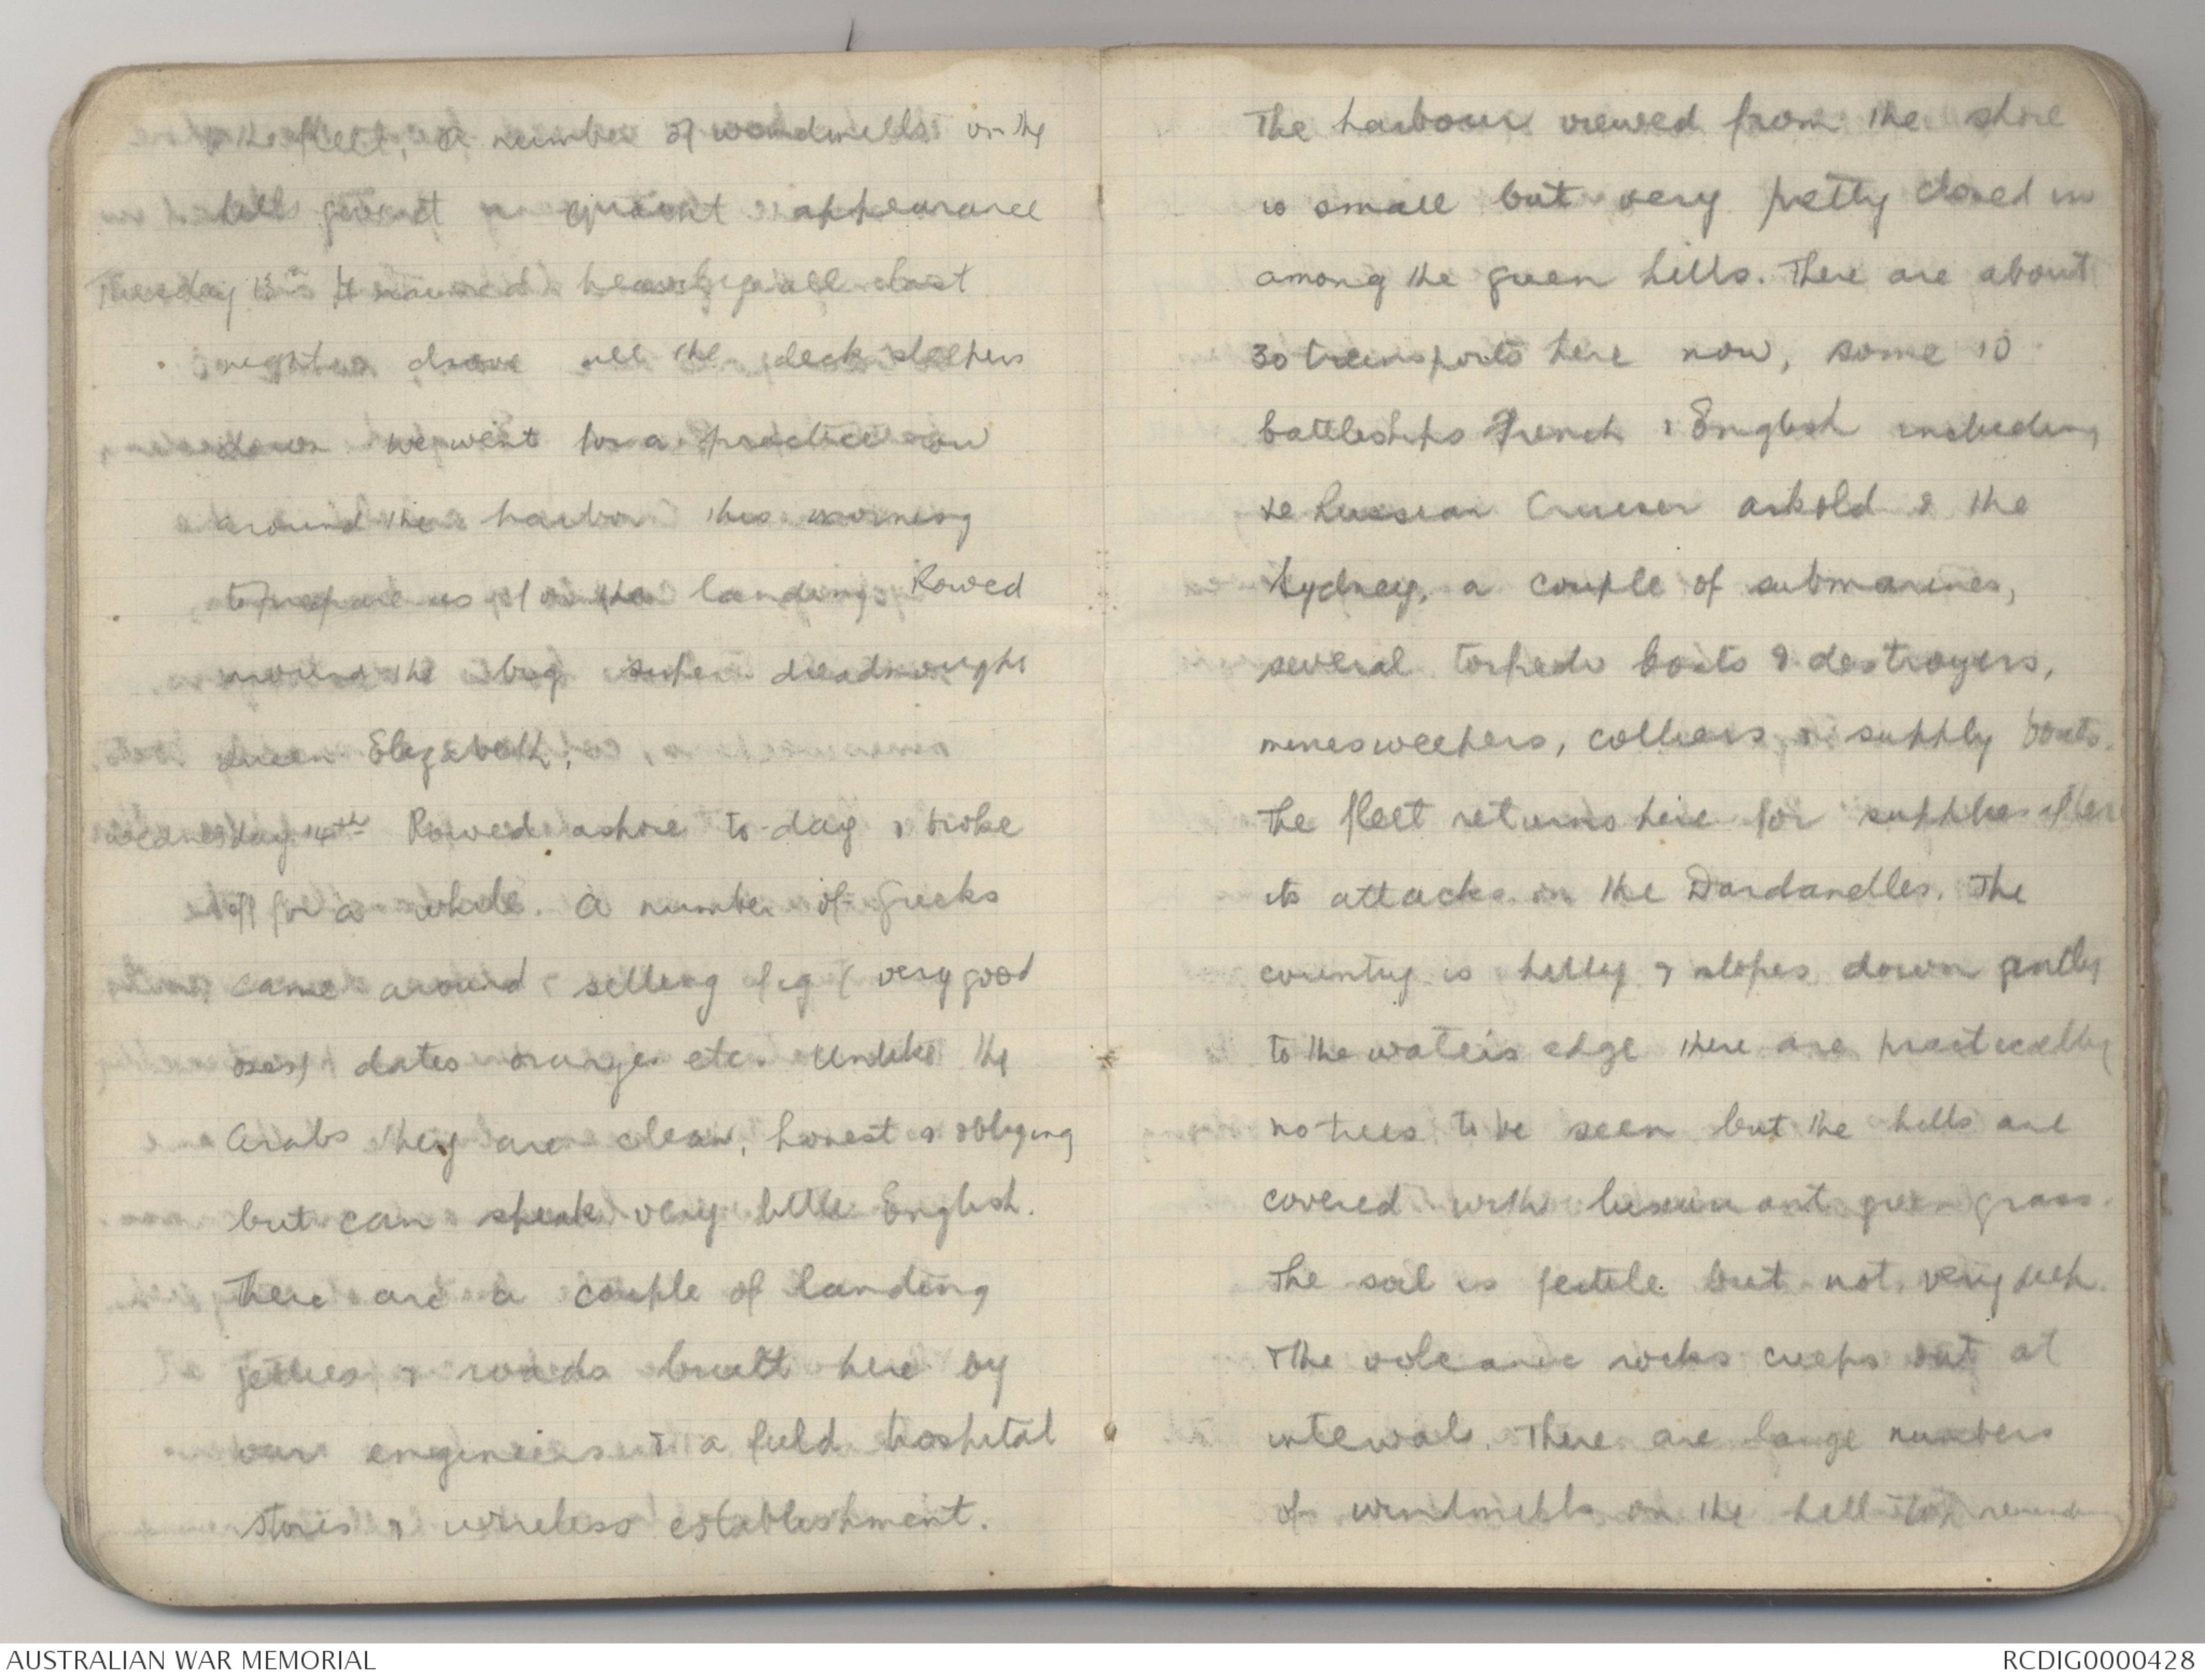 the fleet, a number of windmills on the
hills give it a quaint appearance
Tuesday 13th It rained heavily all last
night & drove all the deck sleepers
down we went for a practice row
around the harbor this morning
to prepare us for the landing. Rowed
around the big super dreadnought
Queen Elizabeth.
Wednesday 14th Rowed ashore to-day & broke
off for a while. A number of Greeks
came around selling figs (very good
ones) dates oranges etc. Unlike the
Arabs they are clean, honest & obliging
but can speak very little English.
There are a couple of landing
jetties & roads built here by
our engineers & a field hospital
stores & wireless establishment.
The harbour viewed from the shore
is small but very pretty closed in
among the green hills. There are about
30 transports here now, some 10
battleships French & English including
te Russian Cruiser askold & the
Sydney, a couple of submarines,
several torpedo boats & destroyers,
minesweepers, colliers & supply boats.
The fleet returns here for supplies after
its attacks on the Dardanelles. The
country is hilly & slopes down gently
to the waters edge there are practically
no trees to be seen but the hills are
covered with luxuriant green grass.
The soil is fertile but not very
The volcanic rocks creeps out at
intervals. There are large numbers
of windmills on the hill top
AUSTRALIAN WAR MEMORIAL
RCDIG0000428